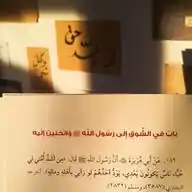 الله حق
بَابٌ في الشَّوق إلى رَسُول الله ﷺ والحَنِين إليه
١٨٩. عَنْ أَبي هُرَيرَةَ ﵁ أَنَّ رَسُولَ اللهِ ﷺ قَالَ: «مِن أَشَدِّ أُمَّتي لي
حُبًّا، نَاسٌ يَكُونُونَ بَعْدِي، يَوَدُّ أَحَدُهُمْ لَو رَآنِي بِأَهْلِهِ ومَالِهِ». أخرجه
ومسلم (٢٨٣٢).